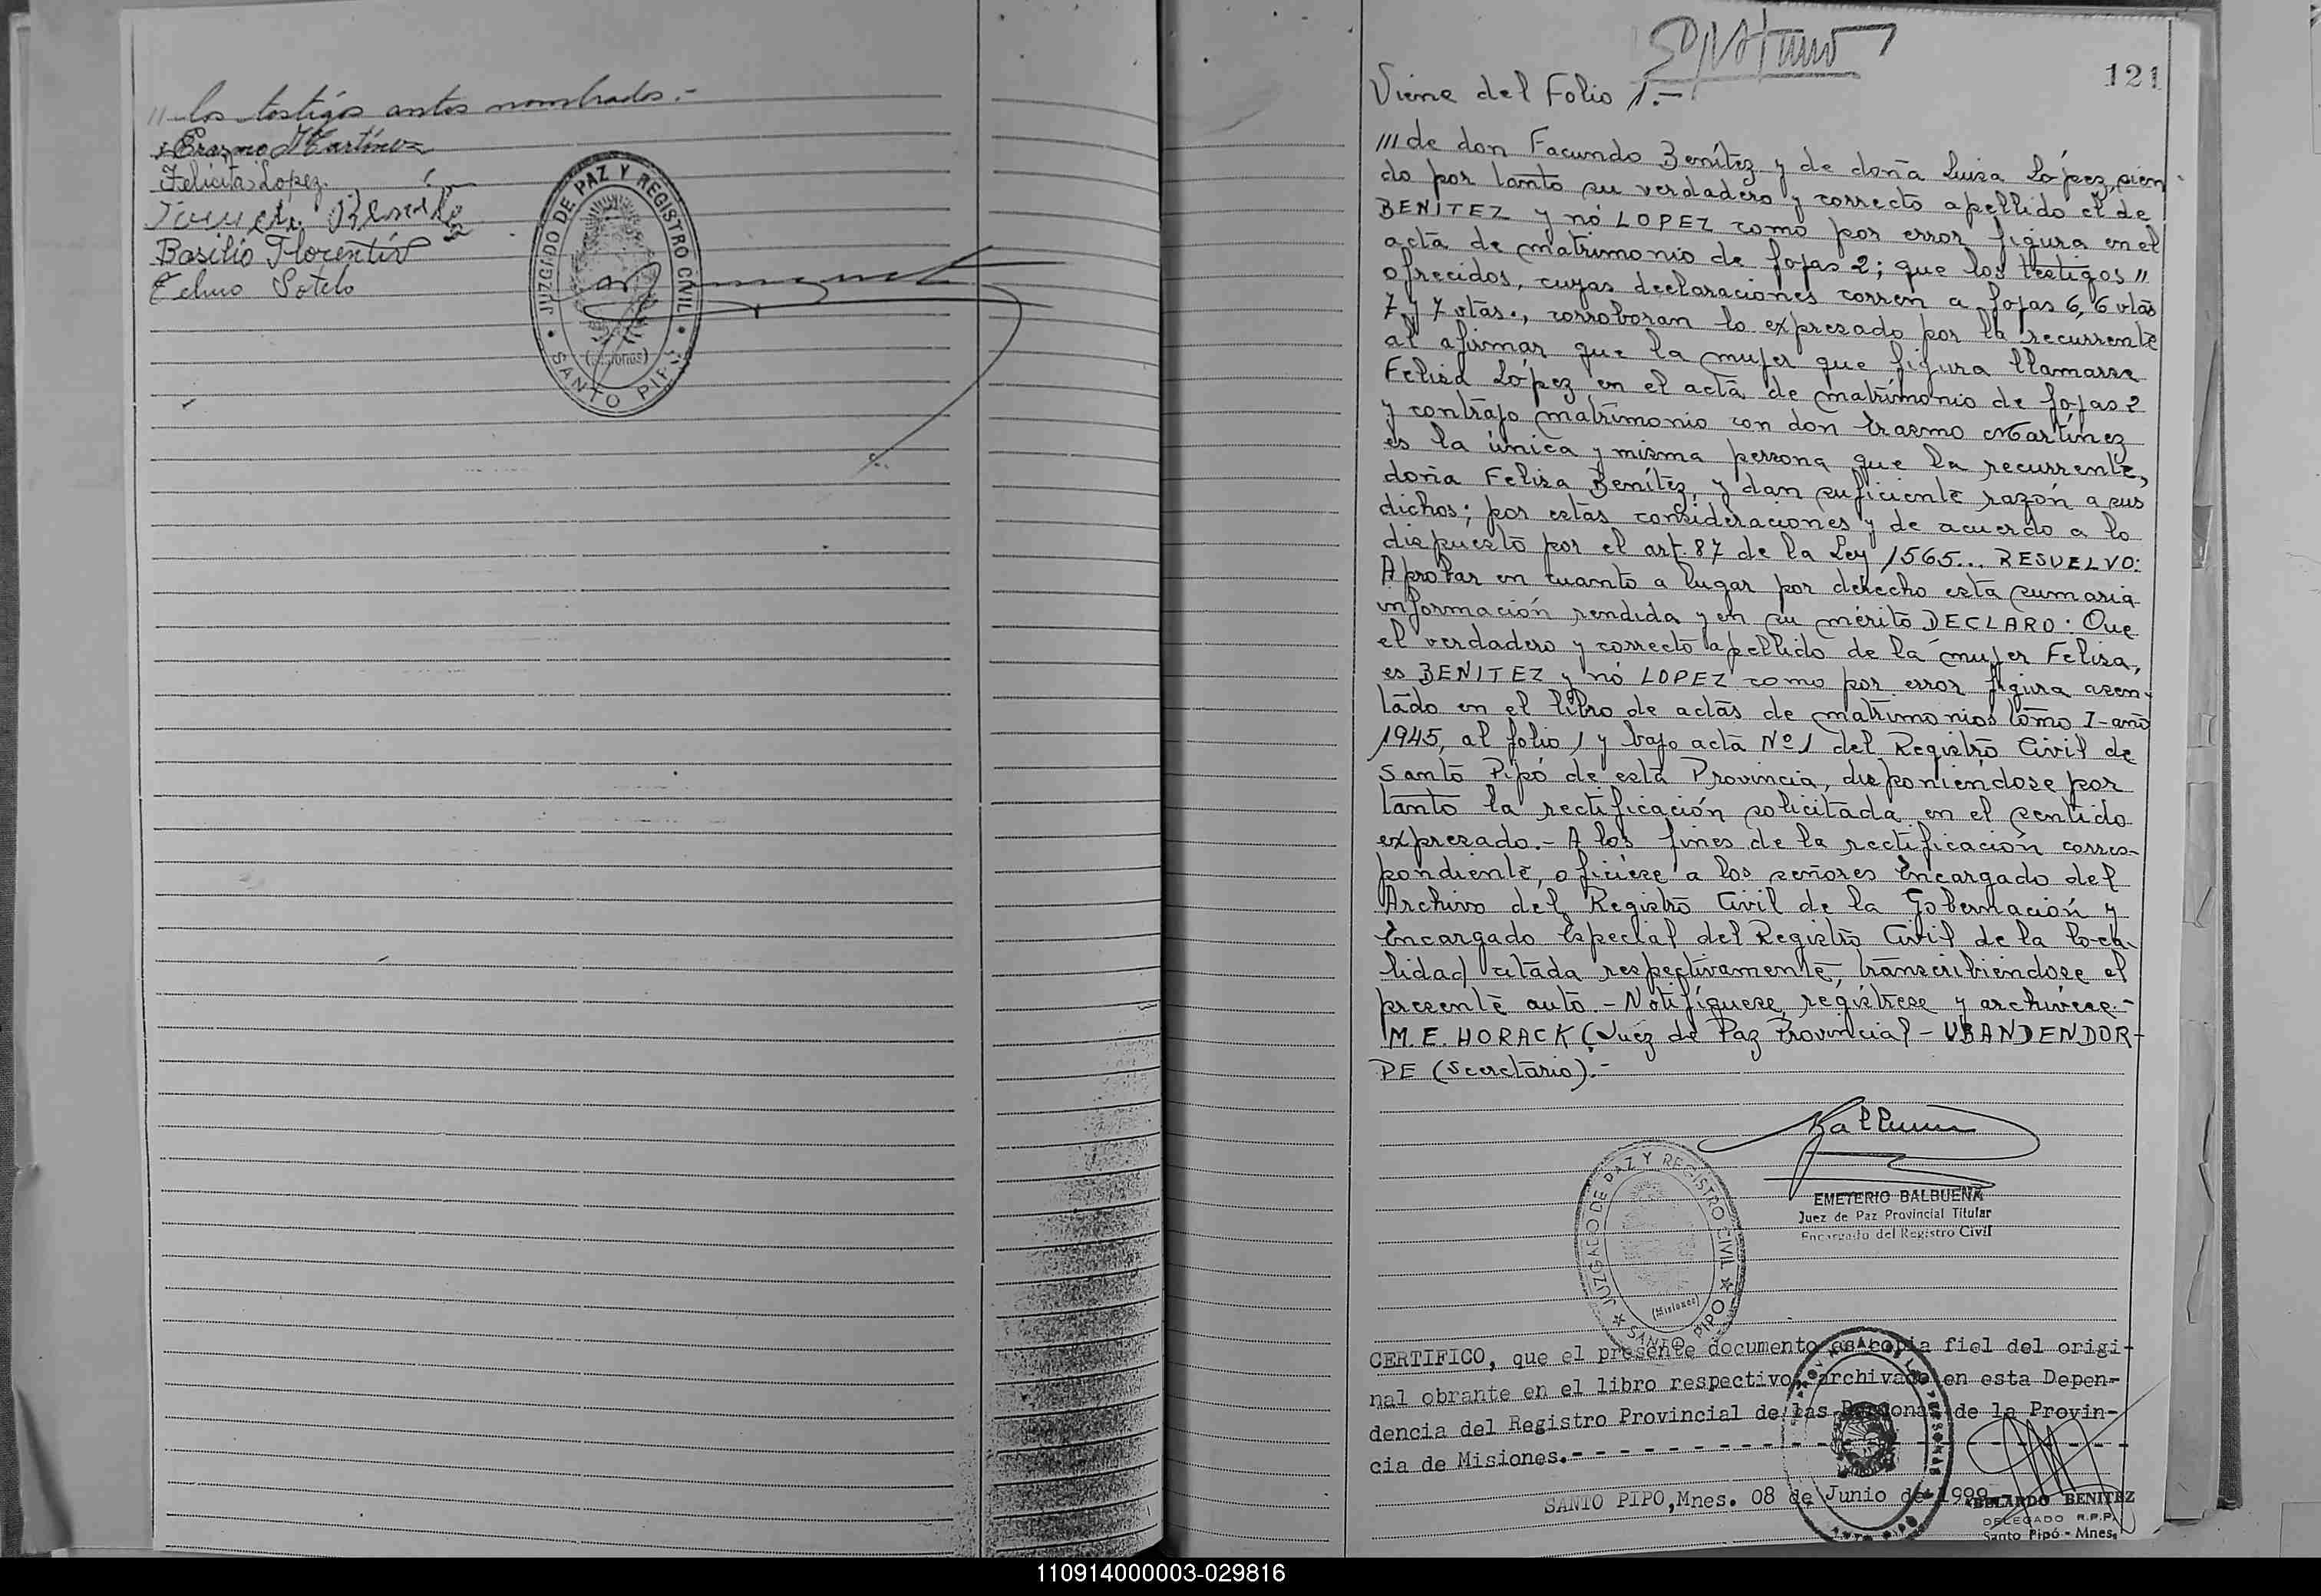 // los testigos antes nombrados.-
Erasmo Martínez
Felicita Lopez
Basilio Florentín
Telmo Sotelo
JUZGADO DE PAZ Y REGISTRO CIVIL
(Misiones)
SANTO PIPÓ
121
Viene del Folio 1.-
///de don Facundo Benítez y de doña Luisa López, sien
do por tanto su verdadero y correcto apellido el de
BENITEZ y nó LOPEZ como por error figura en el
acta de matrimonio de fojas 2; que los testigos //
ofrecidos, cuyas declaraciones corren a fojas 6, 6 vtas
7 y 7 vtas., corroboran lo expresado por la recurrente
al afirmar que la mujer que figura llamarse
Felisa López en el acta de matrimonio de fojas 2
y contrajo matrimonio con don Erasmo Martínez
es la única y misma persona que la recurrente,
doña Felisa Benítez, y dan suficiente razón a sus
dichos; por estas consideraciones y de acuerdo a lo
dispuesto por el art. 87 de la Ley 1565... RESUELVO:
Aprobar en cuanto a lugar por derecho esta sumaria
información rendida y en su mérito DECLARO: Que
el verdadero y correcto apellido de la mujer Felisa,
es BENITEZ y nó LOPEZ como por error figura asen-
tado en el libro de actas de matrimonios tomo I-año
1945, al folio 1 y bajo acta Nº 1 del Registro Civil de
Santo Pipó de esta Provincia, disponiéndose por
tanto la rectificación solicitada en el sentido
expresado.- A los fines de la rectificación corres-
pondiente, ofíciese a los señores Encargado del
Archivo del Registro Civil de la Gobernación y
Encargado Especial del Registro Civil de la loca-
lidad citada respectivamente, transcribiéndose el
presente auto.- Notifíquese, regístrese y archívese.-
M.E. HORACK (Juez de Paz Provincial - UBANDENDOR-
PE (Secretario).-
EMETERIO BALBUENA
Juez de Paz Provincial Titular
Encargado del Registro Civil
JUZGADO DE PAZ Y REGISTRO CIVIL
(Misiones)
SANTO PIPO
CERTIFICO, que el presente documento es copia fiel del origi-
nal obrante en el libro respectivo, archivado en esta Depen-
dencia del Registro Provincial de las Personas de la Provin-
cia de Misiones.- - - - - - - - - - - - - - - - - - - - - - -
SANTO PIPO, Mnes. 08 de Junio de 1999
BENITEZ
DELEGADO R.P.P.
Santo Pipó - Mnes.
110914000003-029816